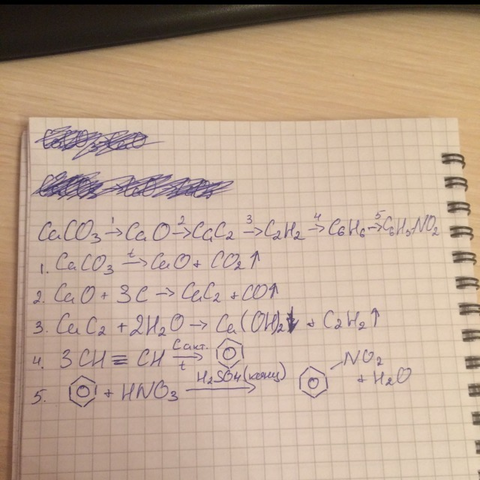 CaCO₃ →¹ CaO →² CaC₂ →³ C₂H₂ →⁴ C₆H₆ →⁵ C₆H₅NO₂
1. CaCO₃ →ᵗ CaO + CO₂↑
2. CaO + 3C → CaC₂ + CO↑
3. CaC₂ + 2H₂O → Ca(OH)₂↓ + C₂H₂↑
4. 3CH≡CH Cакт. → t
5. + HNO₃ H₂SO₄(конц) → NO₂ + H₂O